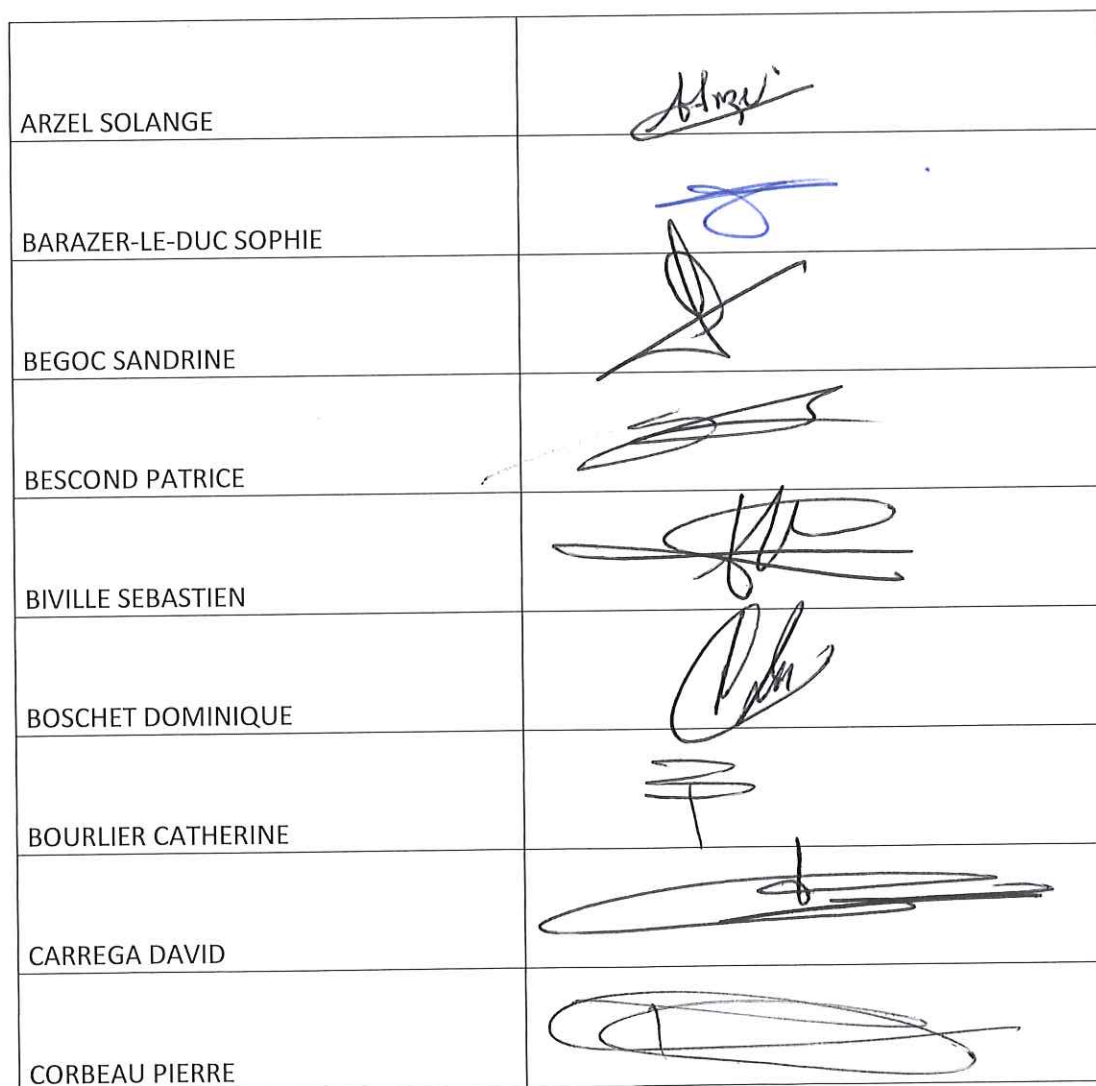 ARZEL SOLANGE
BARAZER-LE-DUC SOPHIE
BEGOC SANDRINE
BESCOND PATRICE
BIVILLE SEBASTIEN
BOSCHET DOMINIQUE
BOURLIER CATHERINE
CARREGA DAVID
CORBEAU PIERRE